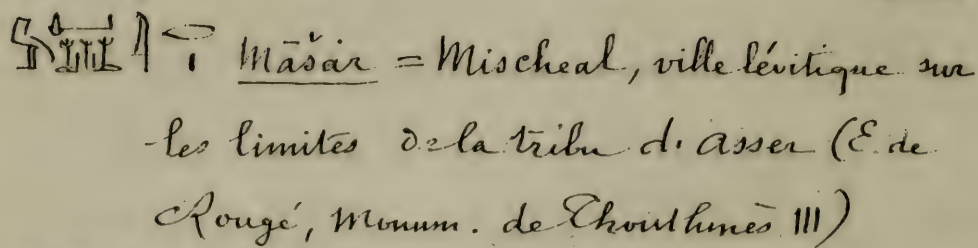 Māšaȉr = Mischeal, ville lévitique sur
les limites de la tribu d'Asser (E. de
Rougé, Monum. de Thouthmès III)